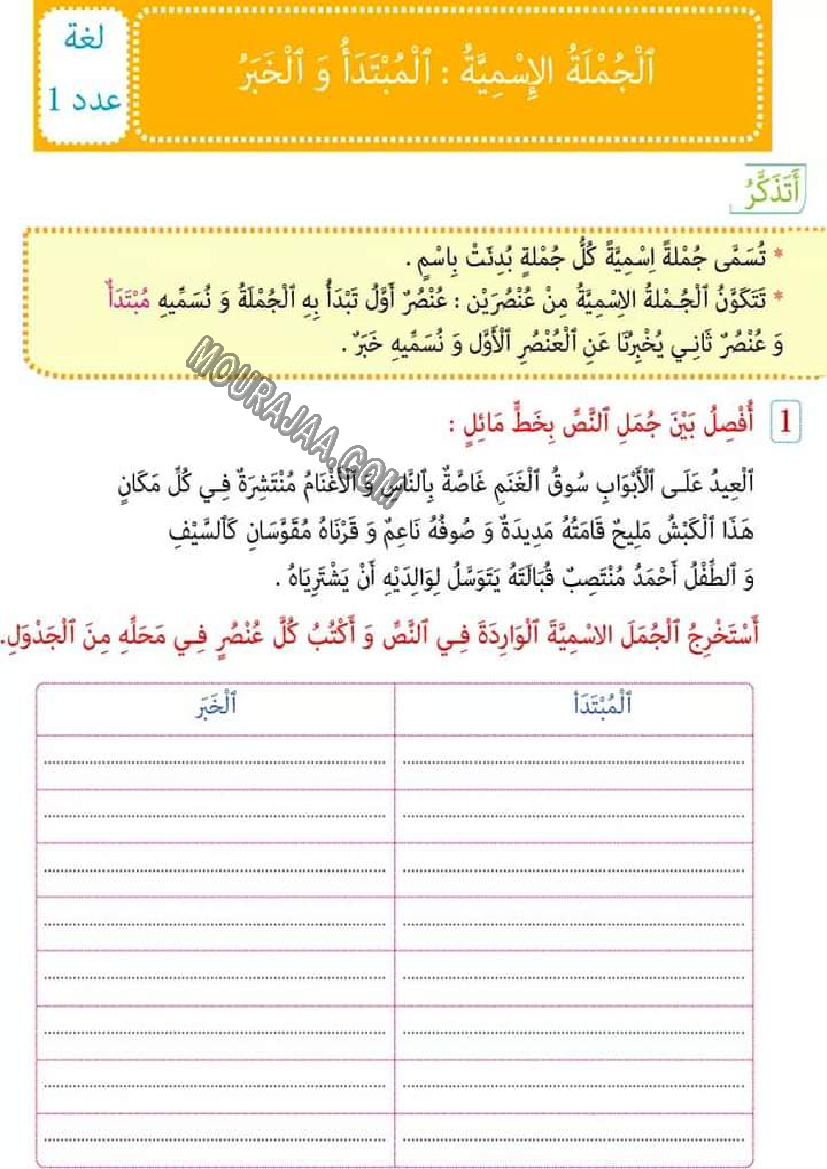 لغة
عدد 1
ٱلْجُمْلَةُ الإِسْمِيَّةُ : ٱلْمُبْتَدَأُ وَ ٱلْخَبَرُ
أَتَذَكَّرُ
* تُسَمَّى جُمْلَةً اِسْمِيَّةً كُلُّ جُمْلةٍ بُدِئَتْ بِاسْمٍ .
* تَتَكَوَّنُ ٱلْجُمْلةُ الإسْمِيَّةُ مِنْ عُنْصُرَيْن : عُنْصُرٌ أَوَّلُ تَبْدَأُ بِهِ ٱلْجُمْلَةُ وَ نُسَمِّيهِ مُبْتَدَأٌ
وَ عُنْصُرٌ ثَانِي يُخْبِرُنَا عَنِ ٱلْعُنْصُرِ ٱلْأَوَّلِ وَ نُسَمِّيهِ خَبَرٌ .
1 أُفْصِلُ بَيْنَ جُمَلِ ٱلنَّصِّ بِخَطٍّ مَائِلٍ :
ٱلْعِيدُ عَلَى ٱلْأَبْوَابِ سُوقُ ٱلْغَنَمِ غَاصَّةٌ بِٱلنَّاسِ وَ ٱلْأَغْنَامُ مُنْتَشِرَةٌ فِي كُلِّ مَكَانٍ
هَذَا ٱلْكَبْشُ مَلِيحٌ قَامَتُهُ مَدِيدَةٌ وَ صُوفُهُ نَاعِمٌ وَ قَرْنَاهُ مُقَوَّسَانِ كَٱلسَّيْفِ
وَ ٱلطِّفْلُ أَحْمَدُ مُنْتَصِبٌ قُبَالَتَهُ يَتَوَسَّلُ لِوَالِدَيْهِ أَنْ يَشْتَرِيَاهُ .
أَسْتَخْرِجُ ٱلْجُمَلَ الاسْمِيَّةَ ٱلْوَارِدَةَ فِي ٱلنَّصِّ وَ أَكْتُبُ كُلَّ عُنْصُرٍ فِي مَحَلِّهِ مِنَ ٱلْجَدْوَلِ.
ٱلْمُبْتَدَأ ٱلْخَبَر
MOURAJAA.COM